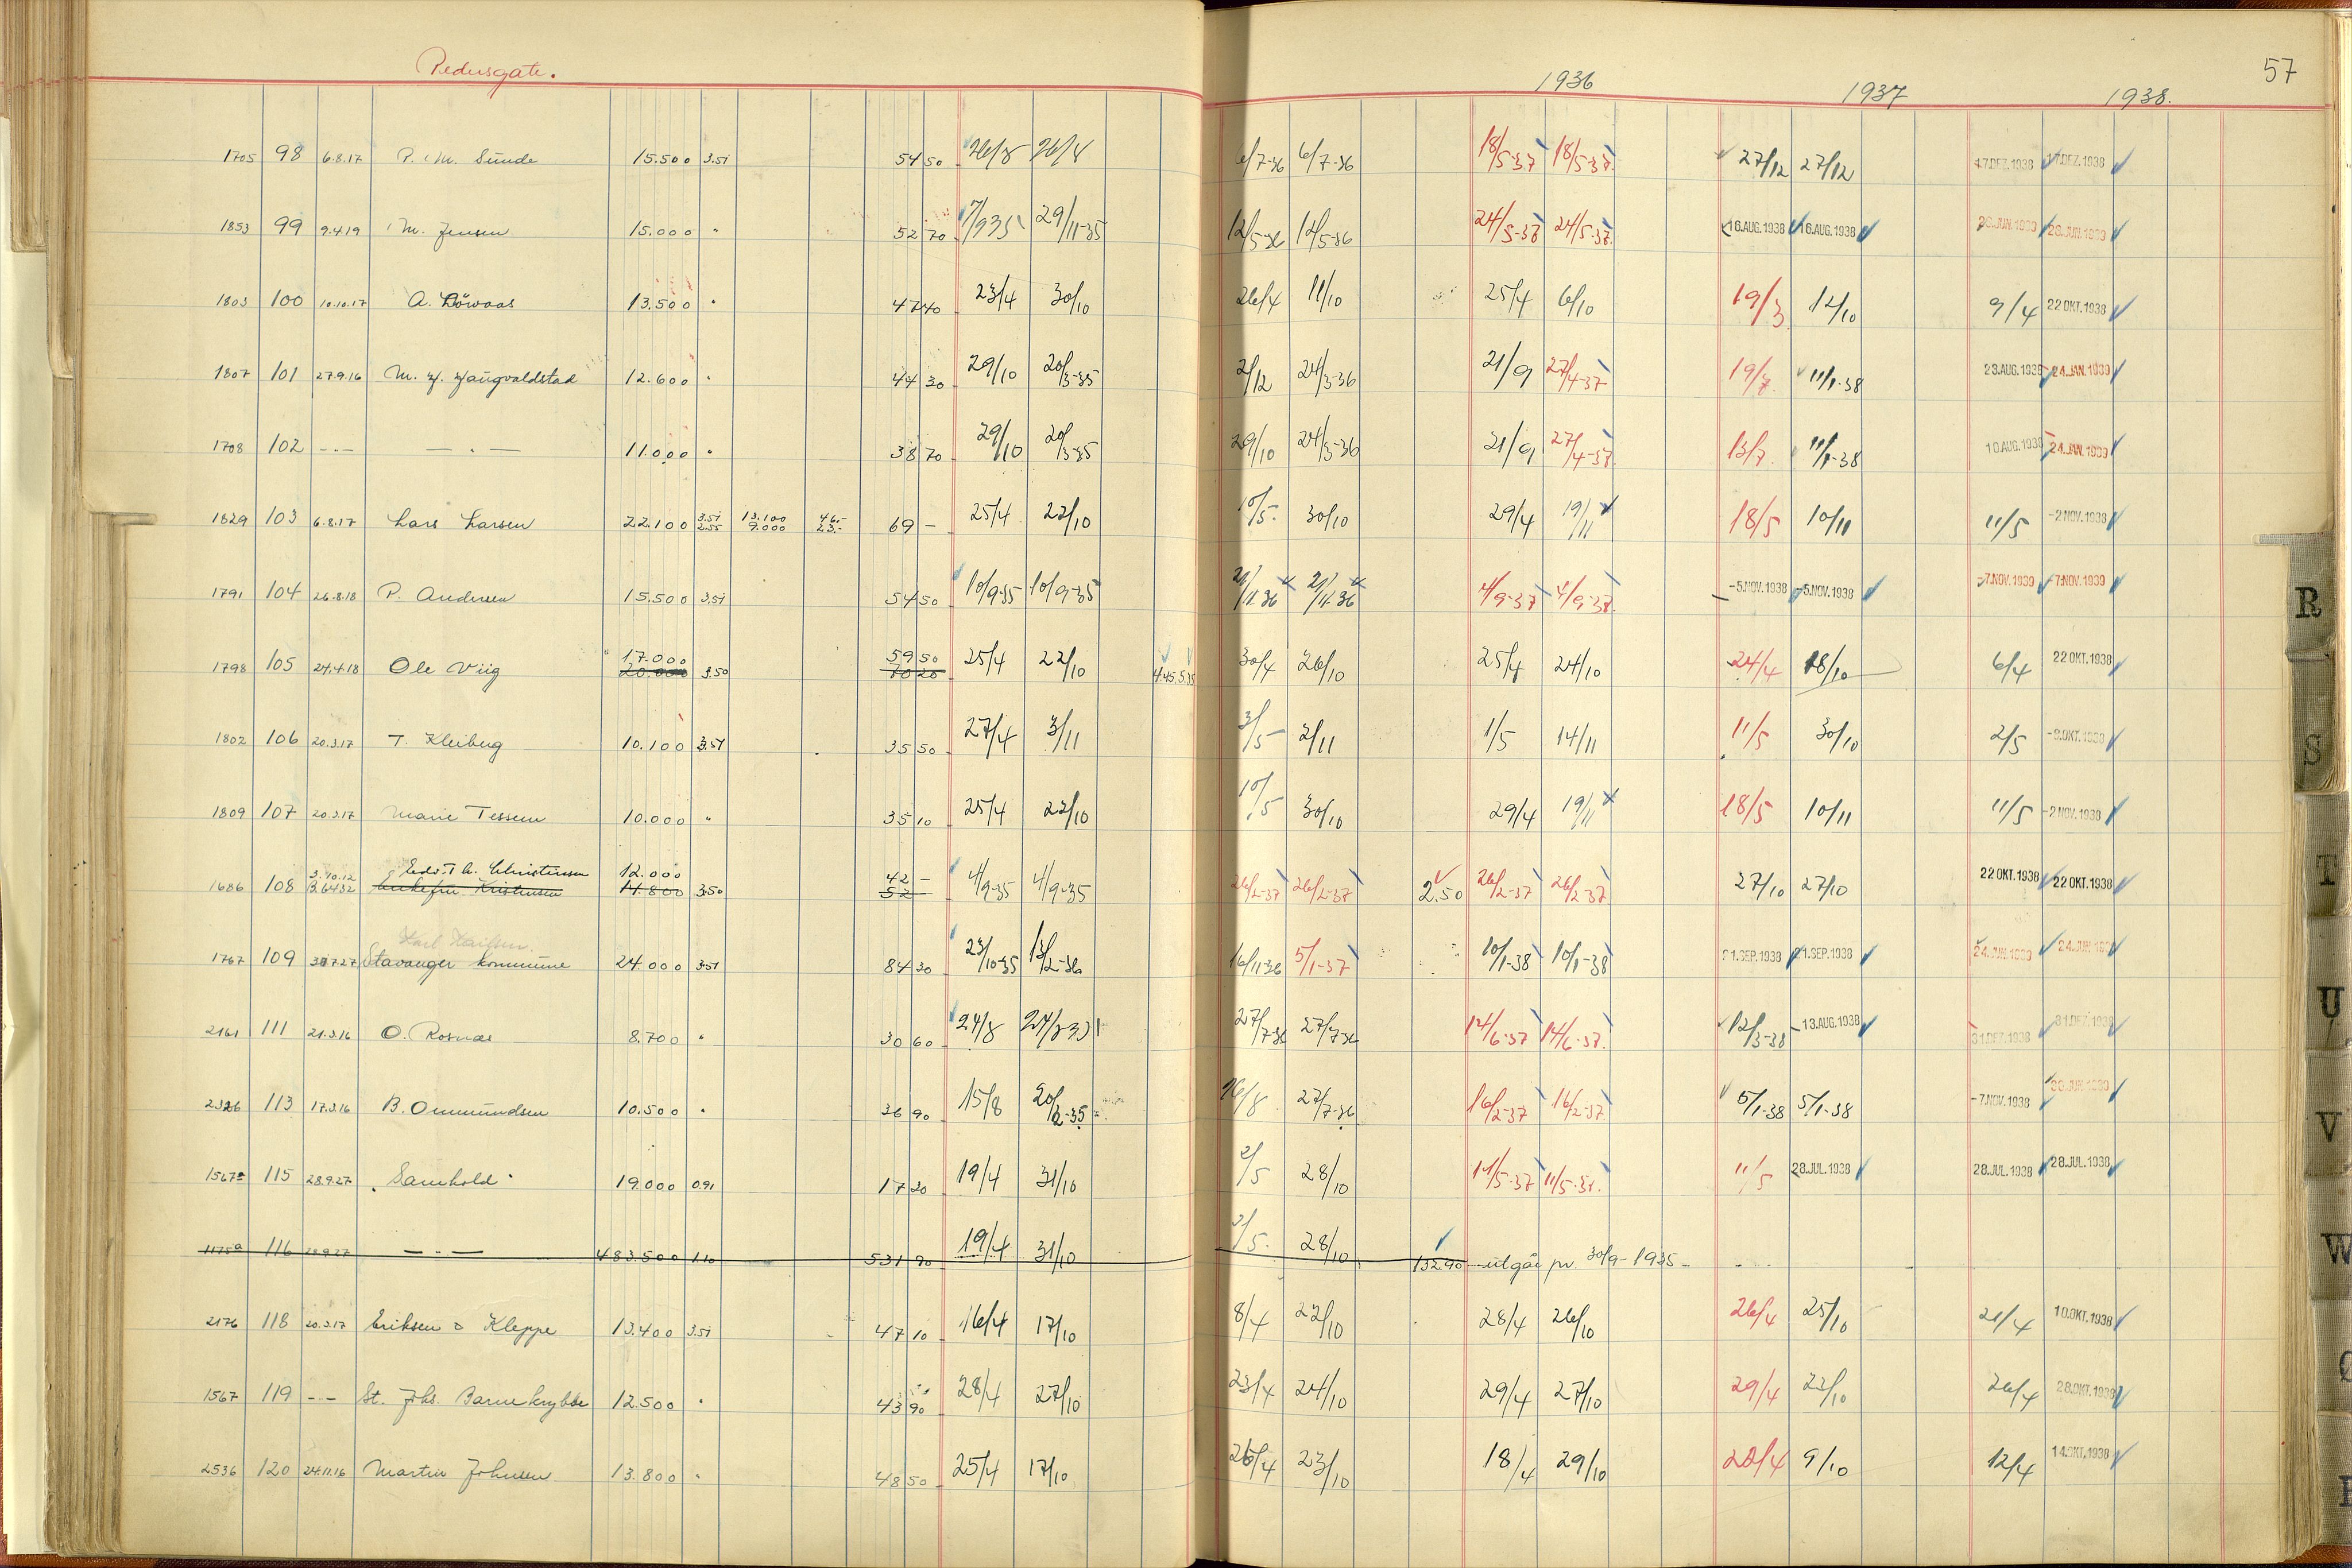 Pedersgate. 1936 1937 1938. 57
1705 98 6.8.17 P. M. Sunde 15.500 3.51 54 50 26/8 26/8 6/7-36 6/7-36 18/5-37 18/5-37. 27/12 27/12 17.DEZ.1938 17.DEZ.1938
1853 99 9.4.19 M. Jensen 15.000 " 52 70 7/9 35 29/11-35 12/5-36 12/5-36 24/5-37 24/5-37. 16.AUG.1938 16.AUG.1938 26.JUN.1939 26.JUN.1939
1803 100 10.10.17 A. Löwaas 13.500 " 47 40 23/4 30/10 26/4 11/10 25/4 6/10 19/3 12/10 9/4 22 OKT.1938
1807 101 27.9.16 M. H. Haugvaldstad 12.600 " 44 30 29/10 20/3-35 2/12 24/3-36 21/9 27/4-37 19/7. 11/1-38 23.AUG.1938 24.JAN.1939
1708 102 -"- — " — 11.000 " 38 70 29/10 20/3-35 29/10 24/3-36 21/9 27/4-37. 13/7. 11/1-38 10.AUG.1938 24.JAN.1939
1829 103 6.8.17 Lars Larsen 22.100 3.51 2.55 13.100 9.000 46.- 23.- 69 - 25/4 22/10 10/5. 30/10 29/4 19/11 18/5 10/11 11/5 -2 NOV.1938
1791 104 26.8.18 P. Andersen 15.500 3.51 54 50 10/9-35 10/9-35 21/11-36 21/11-36 4/9-37 4/9-37. -5.NOV.1938 -5.NOV.1938 -7.NOV.1939 -7.NOV.1939
1798 105 24.4.18 Ole Viig 17.000 20.000 3.50 59 50 70 20 25/4 22/10 4.45 5.35 30/4 26/10 25/4 24/10 24/4 18/10 6/4 22 OKT.1938
1802 106 20.3.17 T. Kleiberg 10.100 3.51 35 50 27/4 3/11 3/5 2/11 1/5 14/11 11/5 30/10 2/5
1809 107 20.3.17 Marie Tessem 10.000 " 35 10 25/4 22/10 10/5 30/10 29/4 19/11 18/5 10/11 11/5 -2 NOV.1938
1686 108 3.10.12 B.6432 Edv. Th. Christensen Enkefru Kristensen 12.000 14.800 3.50 42 - 52 - 4/9-35 4/9-35 26/2-37 26/2-37 2.50 26/2-37 26/2-37 27/10 27/10 22 OKT.1938 22 OKT.1938
1767 109 Stavanger kommune 24.000 3.51 84 30 23/10-35 13/2-36 16/11-36 5/1-37 10/1-38 10/1-38 21.SEP.1938 21.SEP.1938 24.JUN.1939 24.JUN.
2161 111 21.3.16 O. Rosnæs 8.700 " 30 60 24/8 24/8 35 27/7-36 27/7-36 14/6-37 14/6-37. 12/3-38 -13.AUG.1938 31.DEZ.1938 31.DEZ.1938
2326 113 17.3.16 B. Ommundsen 10.500 " 36 90 15/8 20/2-35 26/8 27/7-36 16/2-37 16/2-37 5/1-38 5/1-38 -7.NOV.1938 30.JUN.1939
1567a 115 28.9.27 "Samhold" 19.000 0.91 17 30 19/4 31/10 2/5 28/10 11/5-37 11/5-37. 11/5 28.JUL.1938 28.JUL.1938 28.JUL.1938
1175a 116 28.9.27 — " — 483.500 1.10 531 90 19/4 31/10 2/5. 28/10 132.90 utgår pr. 30/9-1935-
2176 118 20.3.17 Eriksen & Kleppe 13.400 3.51 47 10 16/4 17/10 8/4 22/10 28/4 26/10 26/4 25/10 21/4 10.OKT.1938
1567 119 -"- St. Johs. Barnekrybbe 12.500 " 43 90 28/4 27/10 23/4 24/10 29/4 27/10 29/4 23/10 26/4 28.OKT.1938
2536 120 24.11.16 Martin Johnsen 13.800 " 48 50 25/4 17/10 26/4 23/10 18/4 29/10 20/4 9/10 12/4 14.OKT.1938
R
S
T
U
V
W